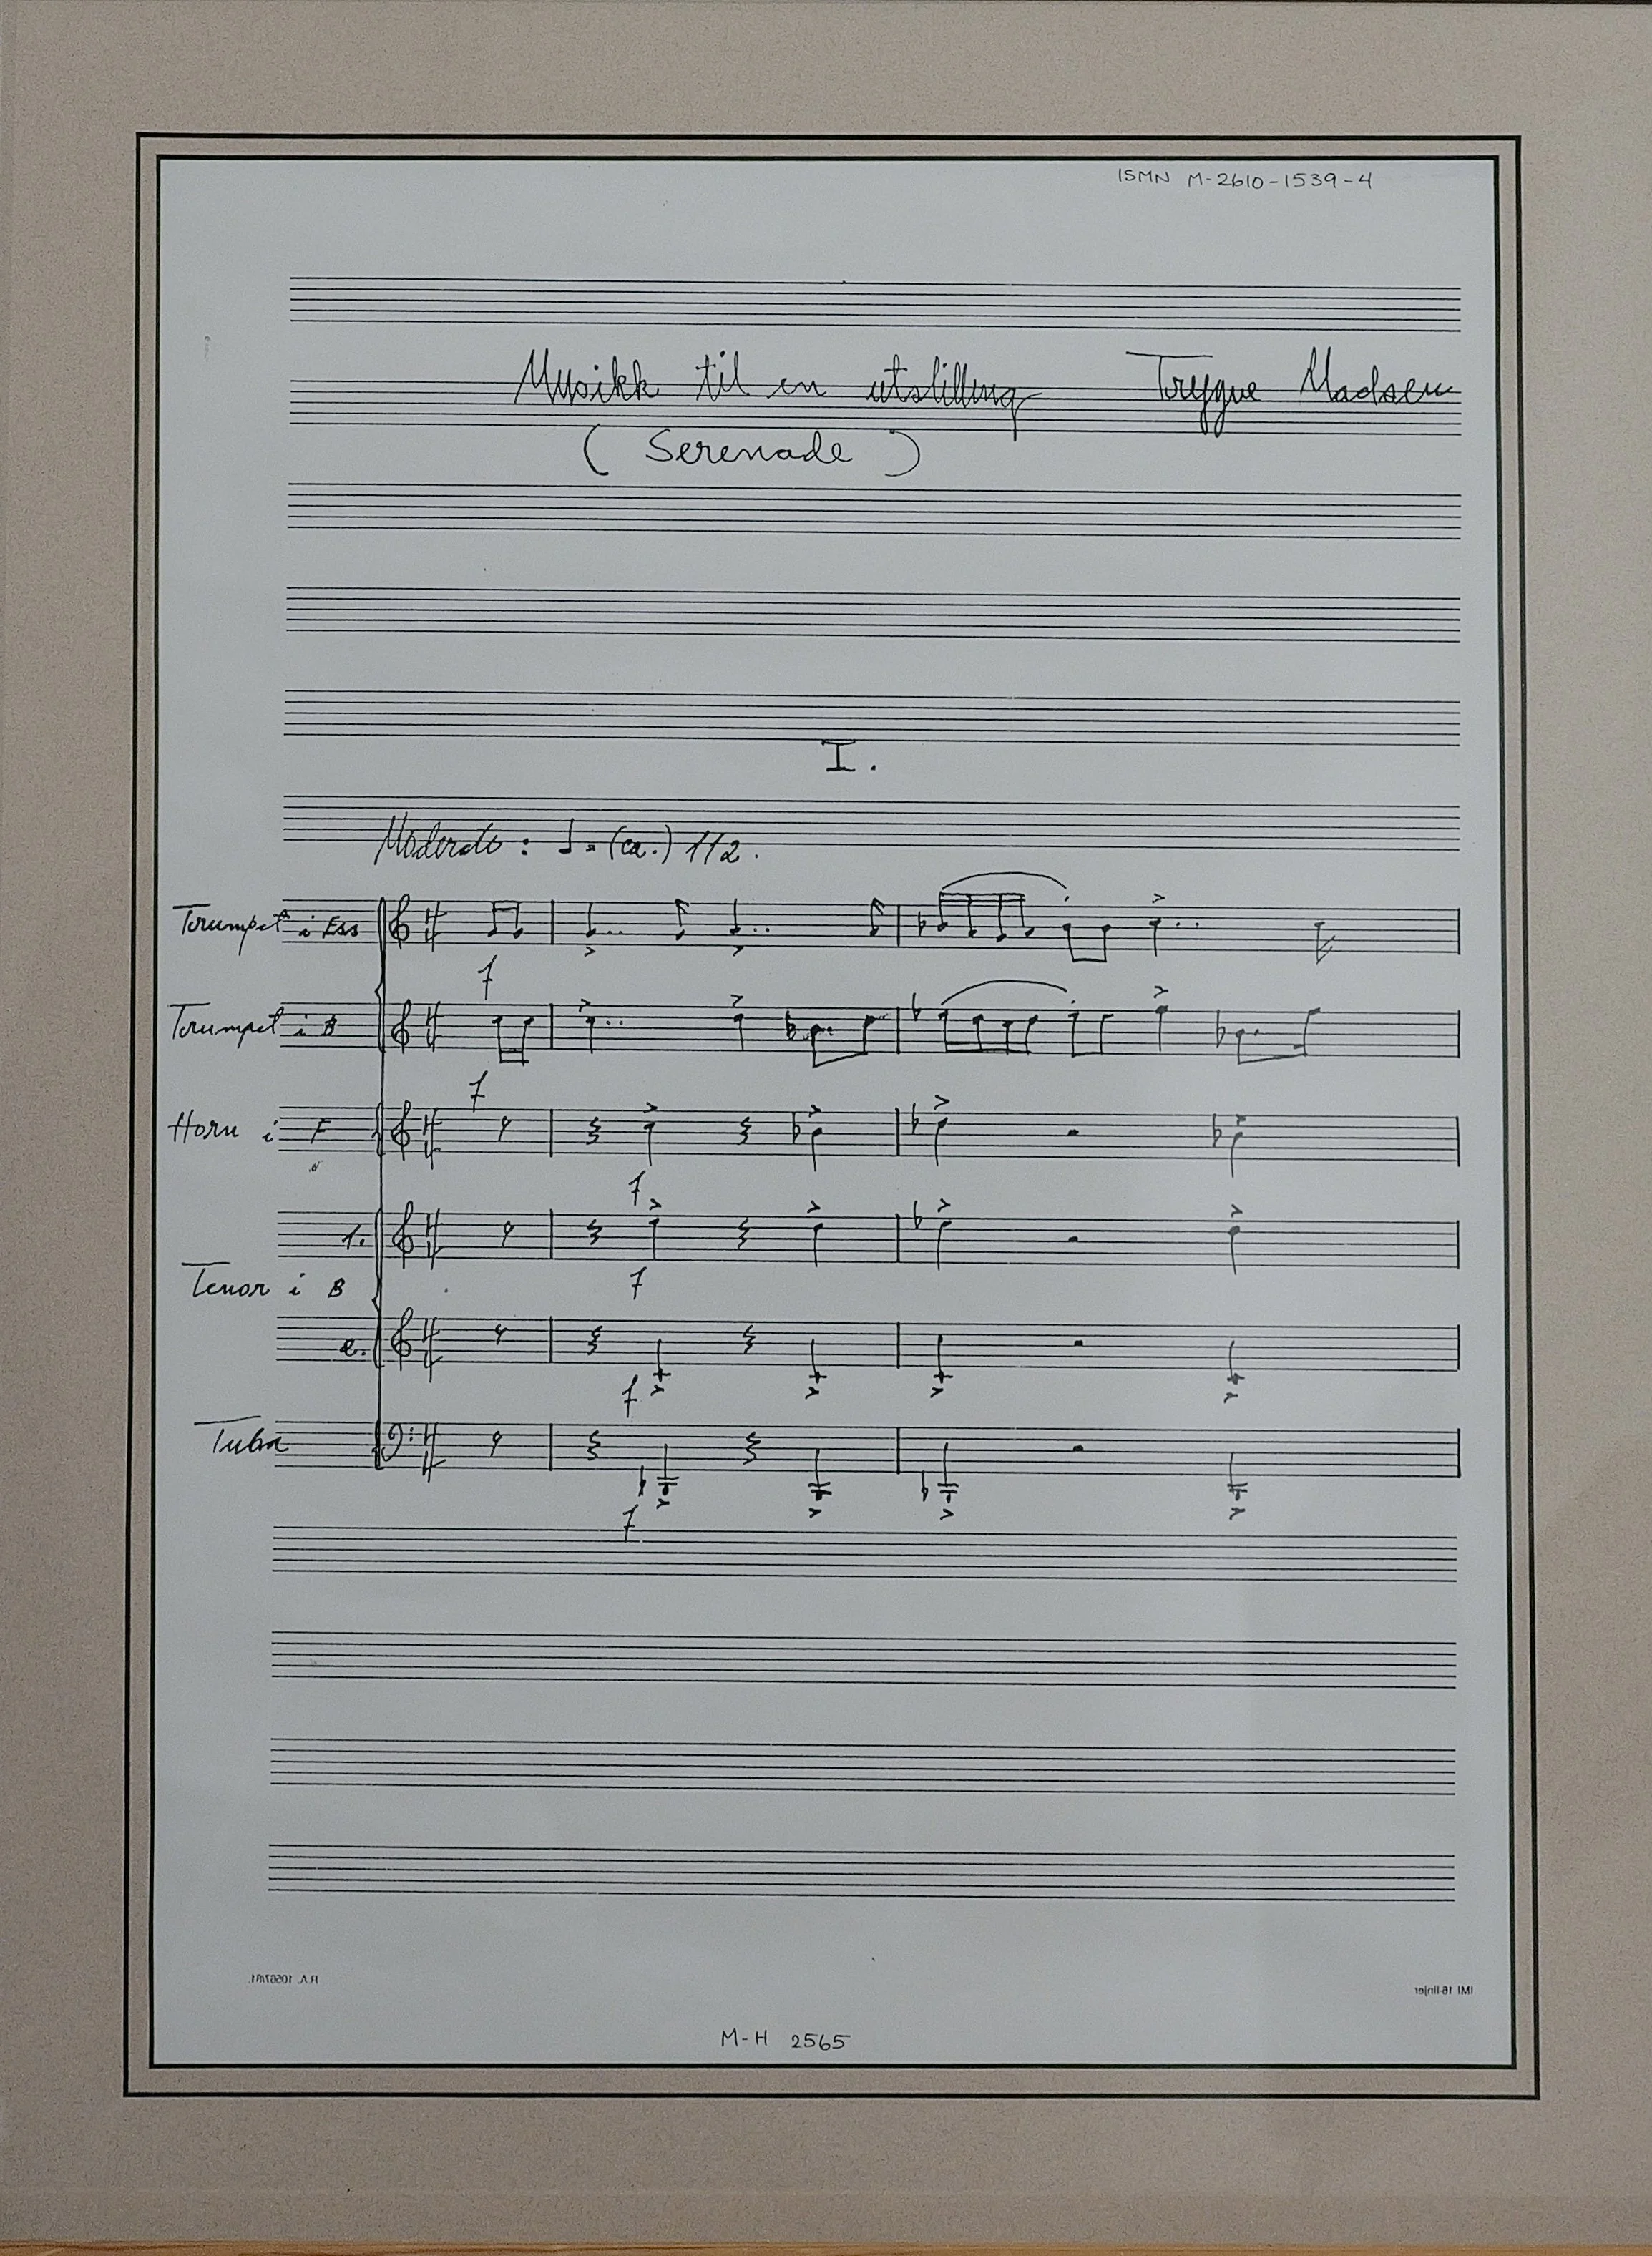 ISMN M-2610-1539-4
Musikk til en utstilling Trygve Madsen
( Serenade )
I.
Moderato : ♩ = (ca.) 112.
Trumpet i Ess
f
Trumpet i B
f
Horn i F
f
1.
f
Tenor i B
2.
f
Tuba
f
R.A. 10567/81.
IMI 16-linjer
M-H 2565